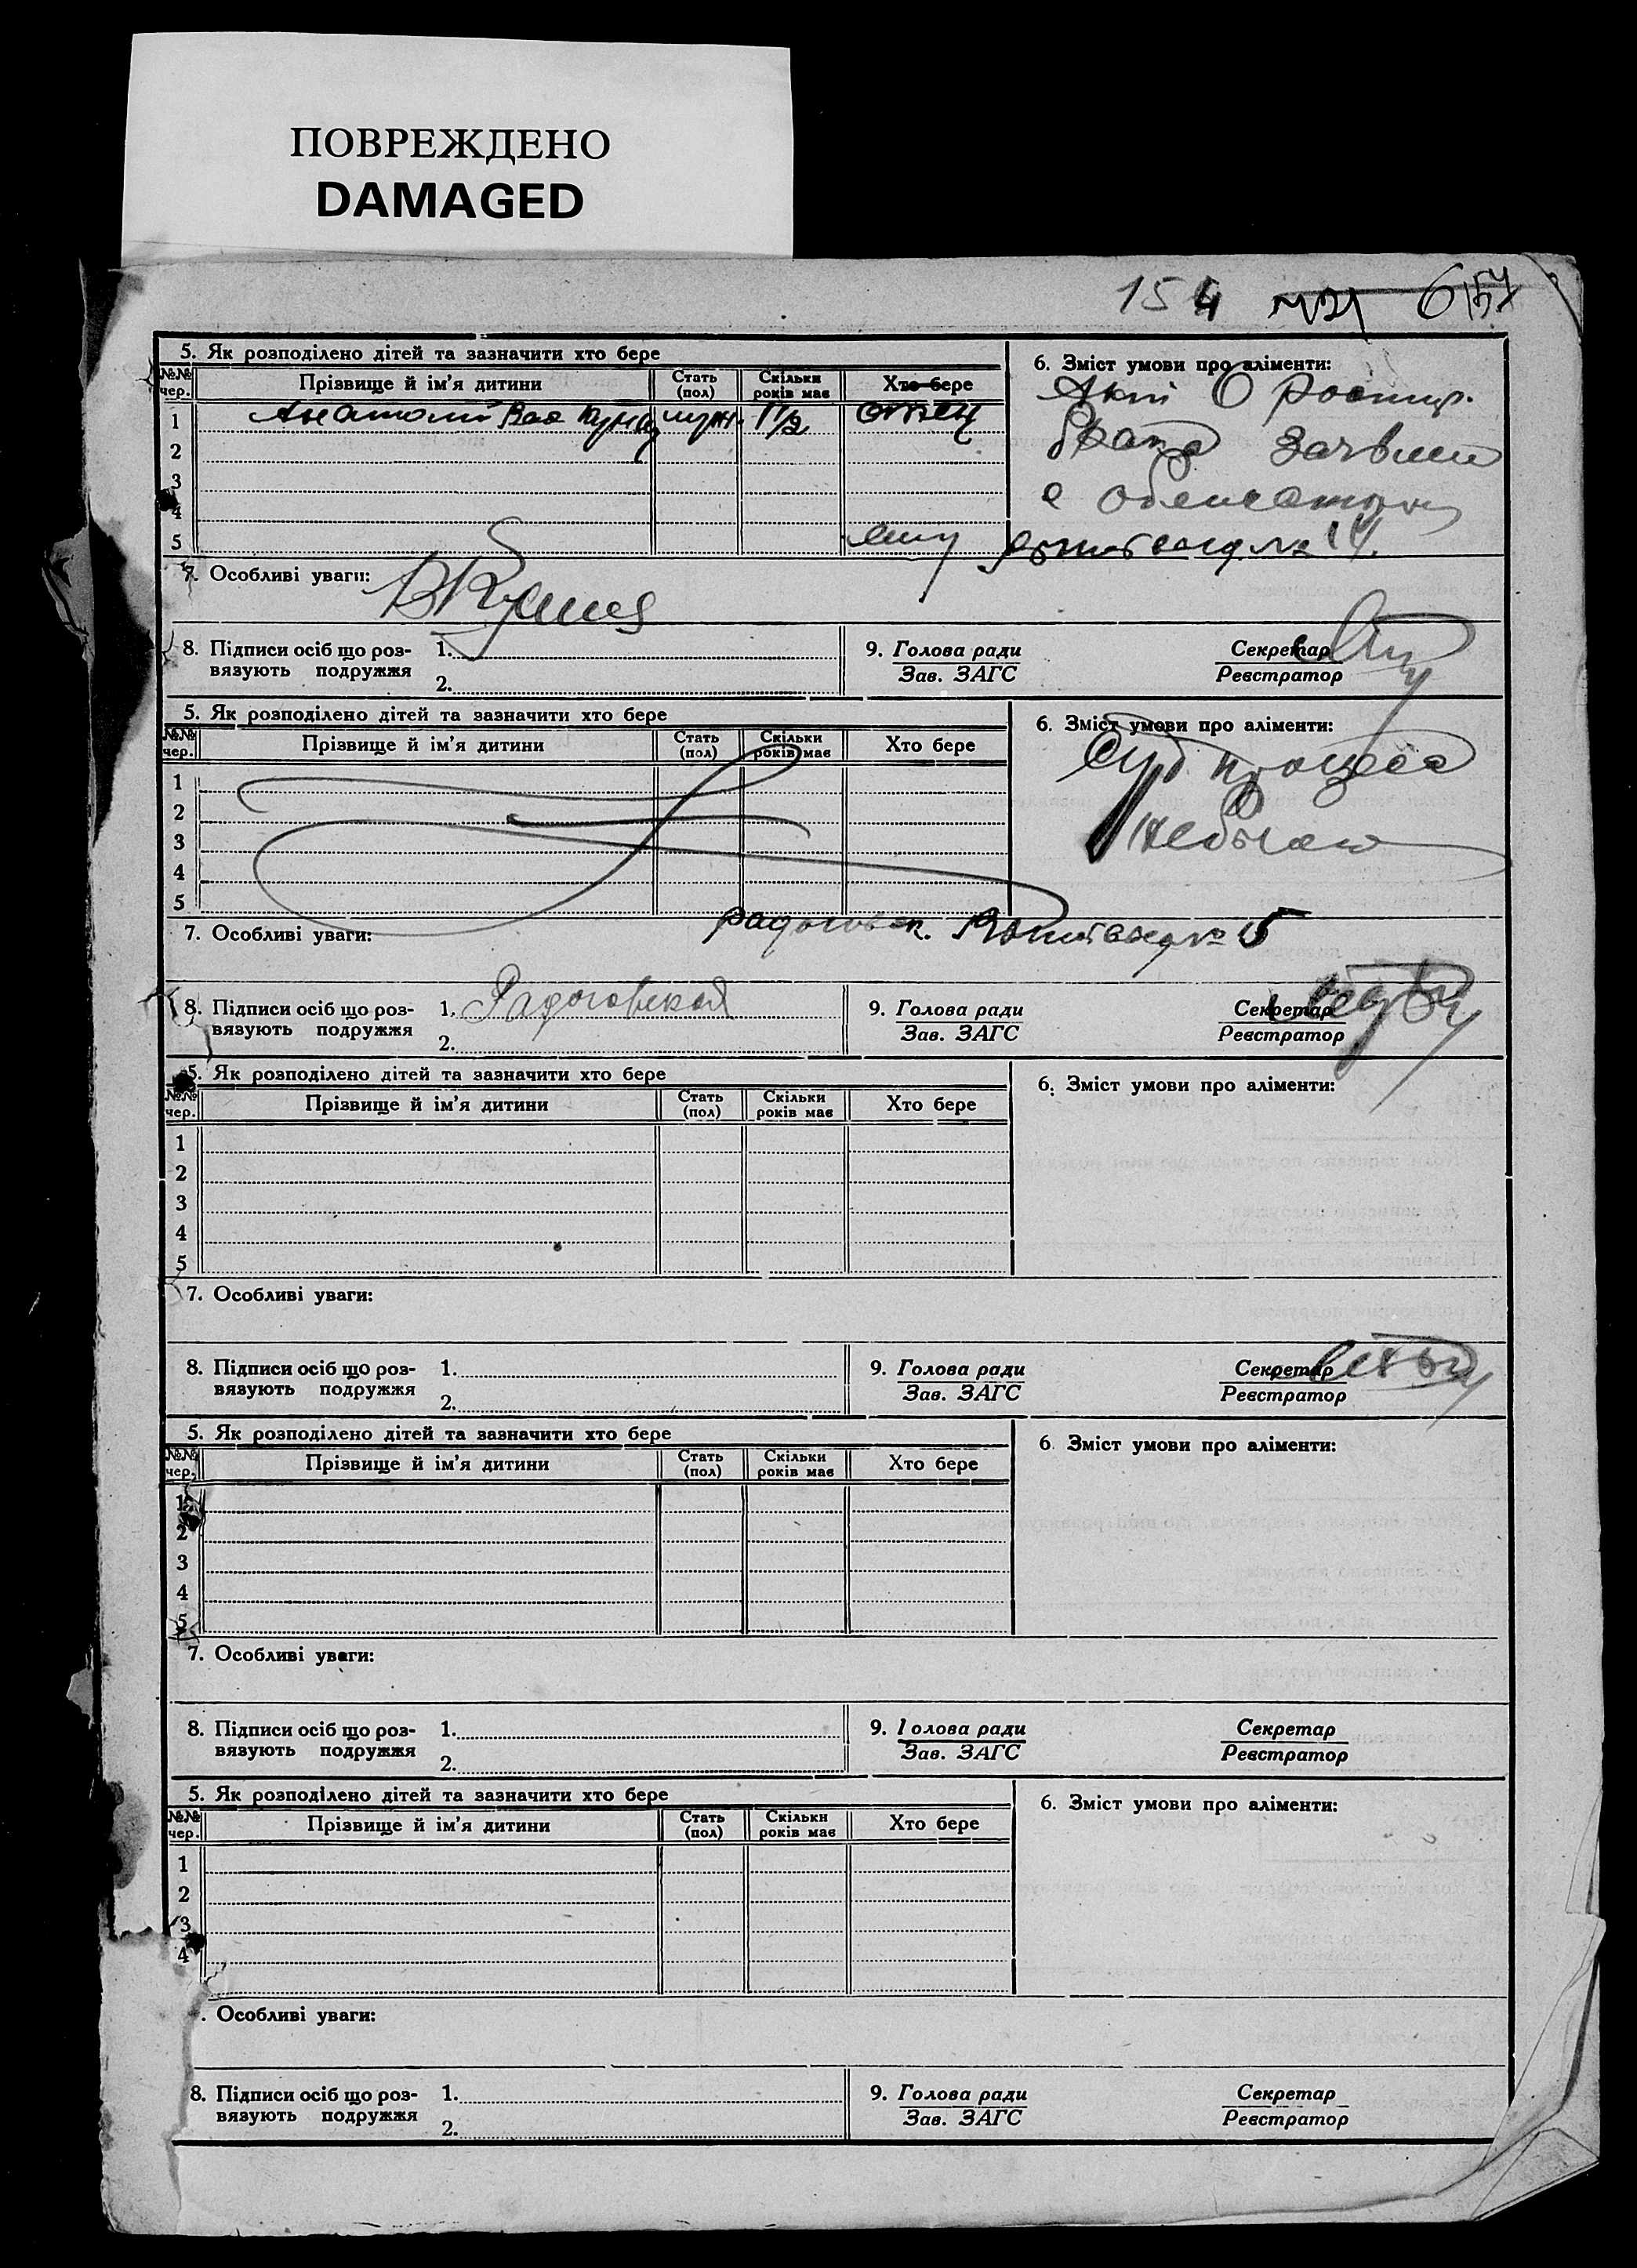 ПОВРЕЖДЕНО
DAMAGED
154
5. Як розподілено дітей та зазначити хто бере
6. Зміст умови про аліменти:
№№ чер. Прізвище й ім'я дитини Стать (пол) Скільки років має Хто бере
Акт О
1 Анатолий муж. 1 1/2 отец
2
3
4
5
7. Особливі уваги:
8. Підписи осіб що роз-вязують подружжя 1.
2.
9. Голова ради
Зав. ЗАГС
Секретар
Реєстратор
5. Як розподілено дітей та зазначити хто бере
6. Зміст умови про аліменти:
№№ чер. Прізвище й ім'я дитини Стать (пол) Скільки років має Хто бере
Суд процесса
небыло
1
2
3
4
5
7. Особливі уваги:
8. Підписи осіб що роз-вязують подружжя 1. Радоговская
2.
9. Голова ради
Зав. ЗАГС
Секретар
Реєстратор
5. Як розподілено дітей та зазначити хто бере
6. Зміст умови про аліменти:
№№ чер. Прізвище й ім'я дитини Стать (пол) Скільки років має Хто бере
1
2
3
4
5
7. Особливі уваги:
8. Підписи осіб що роз-вязують подружжя 1.
2.
9. Голова ради
Зав. ЗАГС
Секретар
Реєстратор
5. Як розподілено дітей та зазначити хто бере
6. Зміст умови про аліменти:
№№ чер. Прізвище й ім'я дитини Стать (пол) Скільки років має Хто бере
1
2
3
4
5
7. Особливі уваги:
8. Підписи осіб що роз-вязують подружжя 1.
2.
9. Голова ради
Зав. ЗАГС
Секретар
Реєстратор
5. Як розподілено дітей та зазначити хто бере
6. Зміст умови про аліменти:
№№ чер. Прізвище й ім'я дитини Стать (пол) Скільки років має Хто бере
1
2
3
4
. Особливі уваги:
8. Підписи осіб що роз-вязують подружжя 1.
2.
9. Голова ради
Зав. ЗАГС
Секретар
Реєстратор